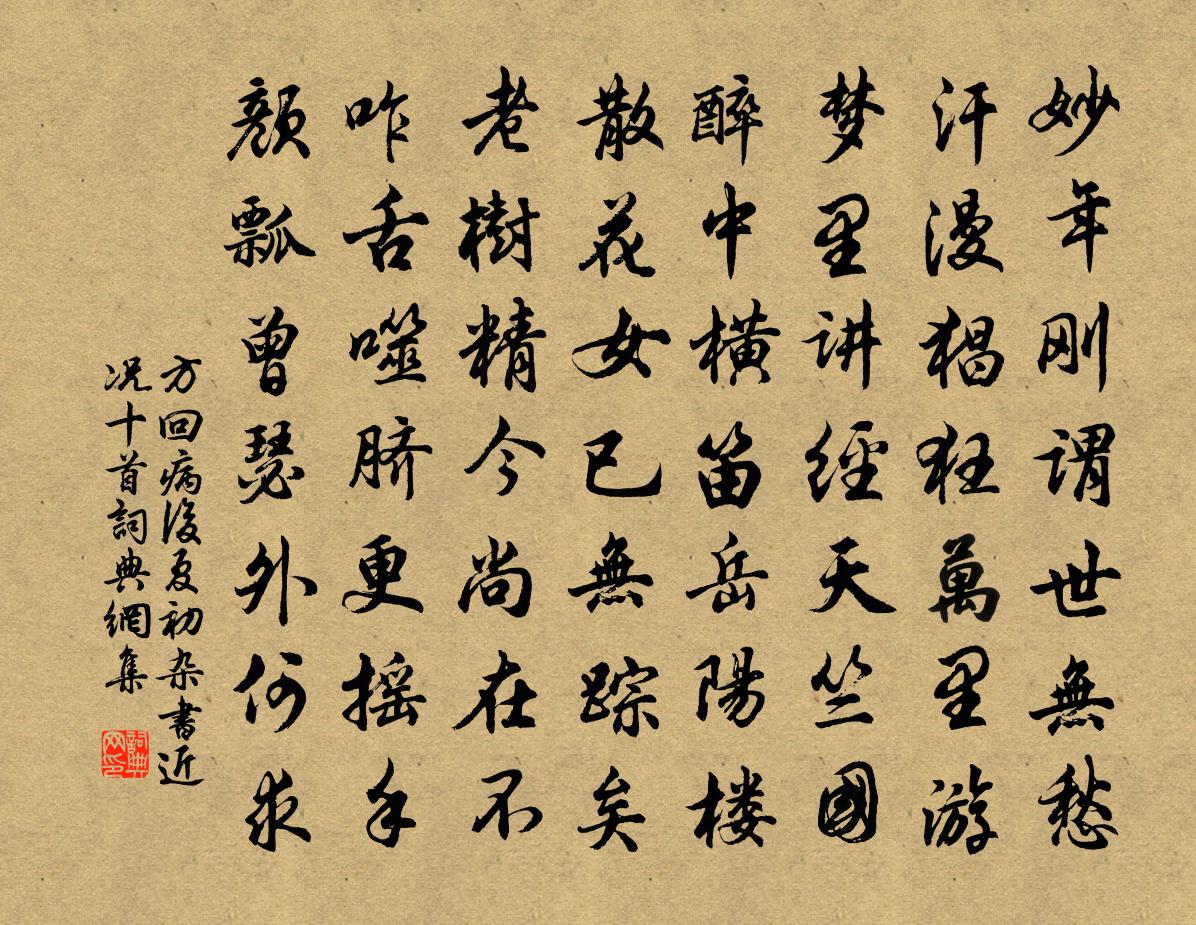 妙年刚谓世無愁
汗漫猖狂萬里游
梦里讲經天竺國
醉中横笛岳陽楼
散花女已無踪矣
老樹精今尚在不
咋舌噬脐更摇手
颜瓢曾瑟外何求
方回病後夏初杂書近
况十首詞典網集
詞典网印